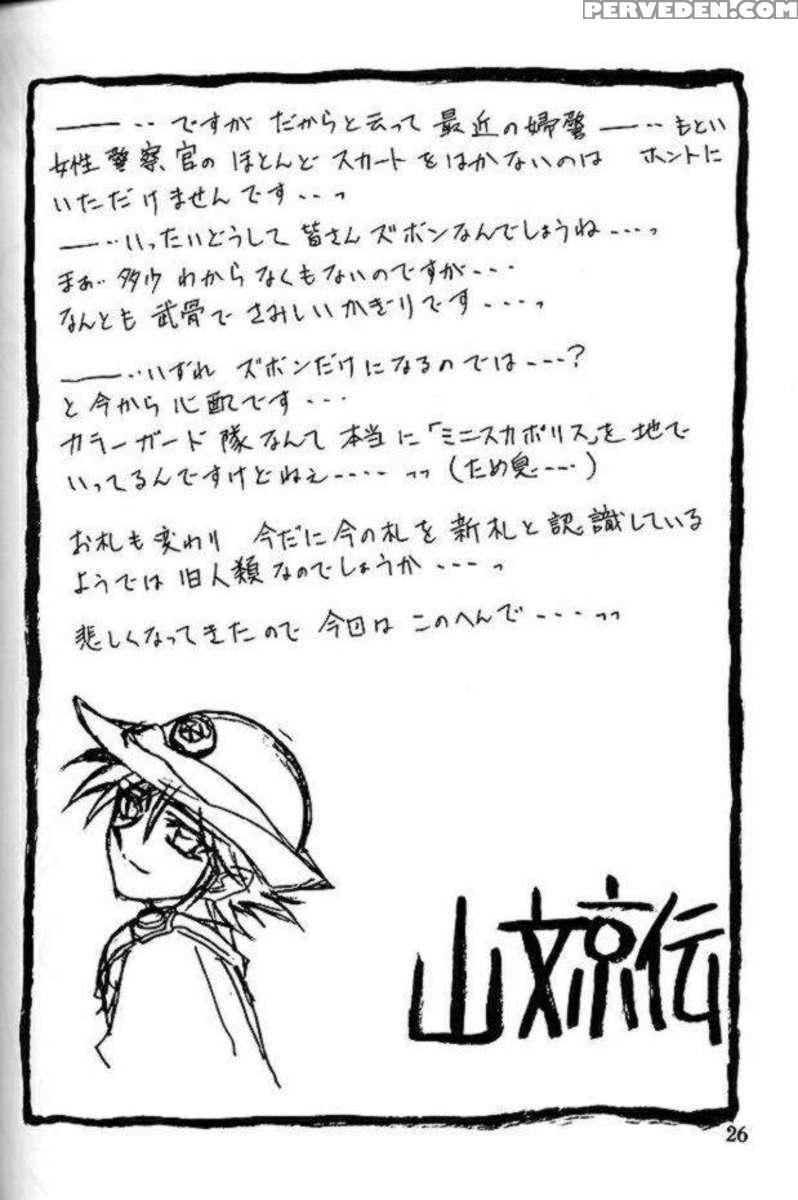 PERVEDEN.COM
――‥ですが だからと云って 最近の婦警――‥もとい
女性警察官の ほとんど スカートをはかないのは ホントに
いただけませんです‥‥っ
――‥いったいどうして 皆さん ズボンなんでしょうね‥‥っ
まぁ‥多少 わからなくもないのですが‥‥
なんとも 武骨で さみしいかぎりです‥‥っ
――‥いずれ ズボンだけになるのでは‥‥?
と今から心配です‥‥
カラーガード隊なんて 本当に「ミニスカポリス」を地で
いってるんですけどねぇ‥‥‥っっ(ため息‥‥)
お札も変わり 今だに今の札を新札と認識している
ようでは旧人類なのでしょうか‥‥っ
悲しくなってきたので 今回は このへんで‥‥っっ
山文京伝
26